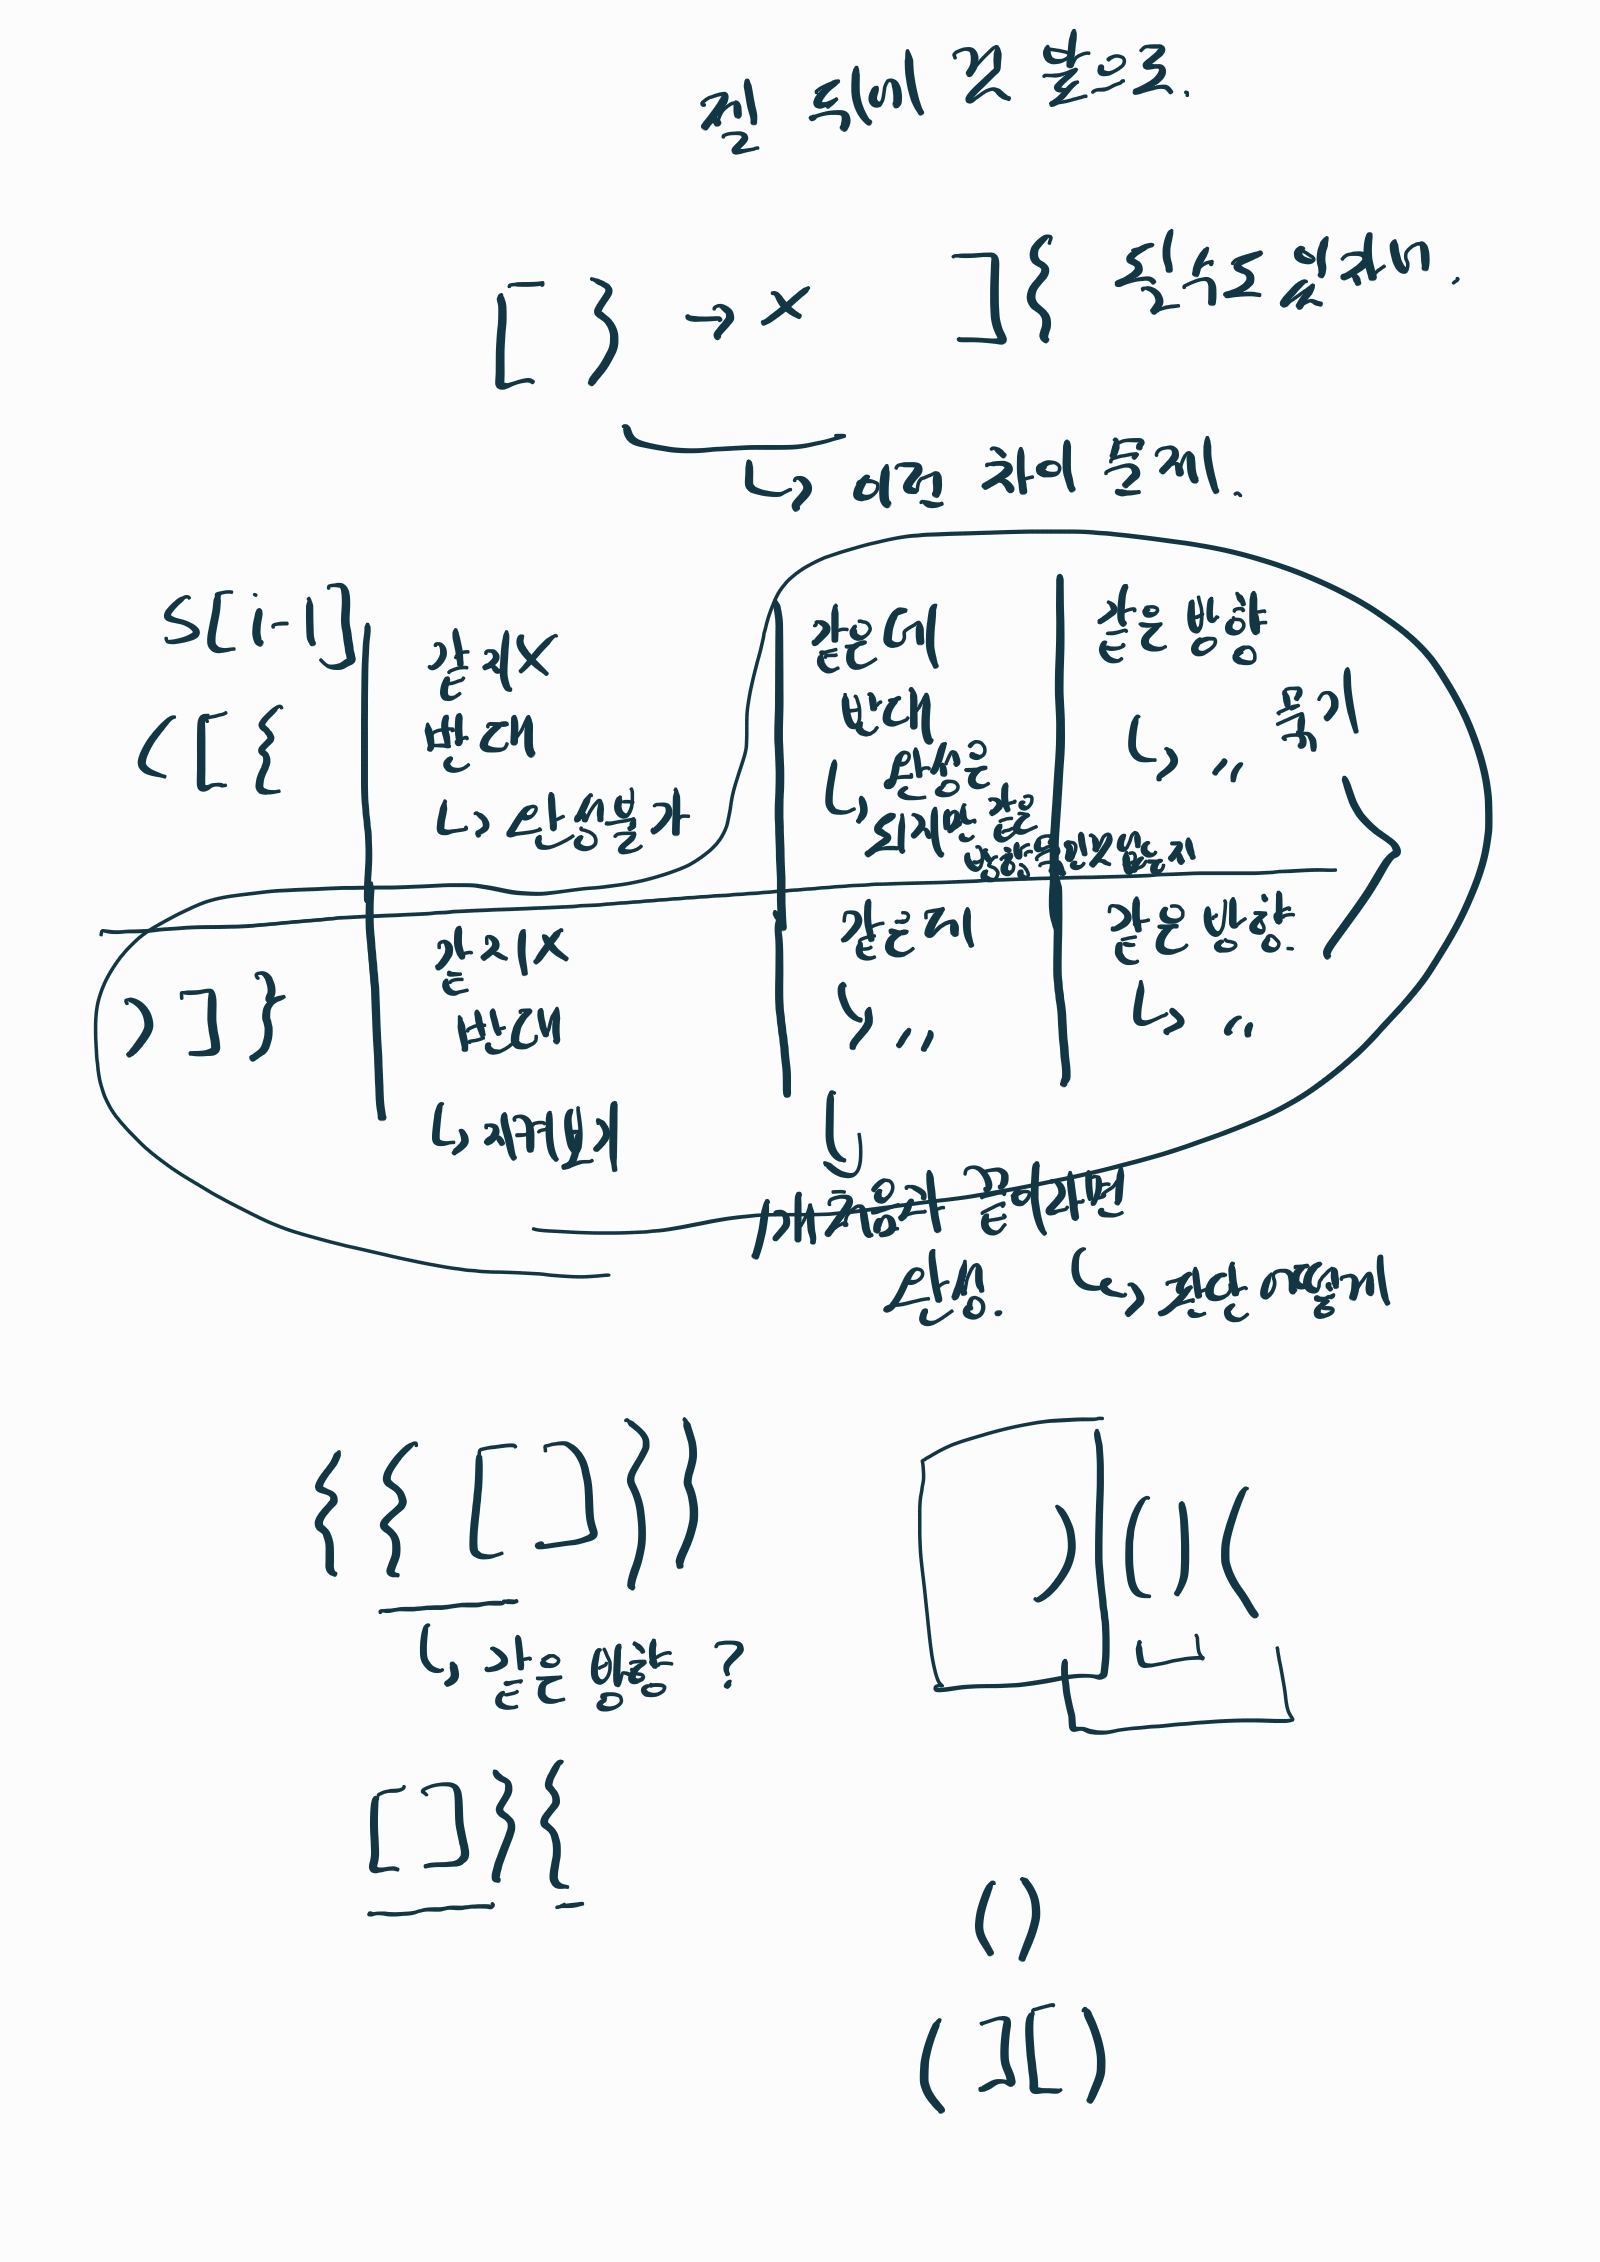 제일 속에 것 밖으로.
[ } → x ]{ 일수도 있자나.
↳ 이런 차이 문제.
S[i-1]
( [ {
같지X
반대
↳ 완성불가
같은데
반대
↳ 완성은
되지만 같은
방향
같은 방향
↳ 〃 묶기
) ] }
같지X
반대
↳ 지켜보기
같은지
↳ 〃
같은 방향
↳ 〃
처음과 끝이라면
완성. ↳ 판단 어떻게
{ { [ ] } }
↳ 같은 방향 ?
) ( ) (
[ ] } {
( )
( ] [ )